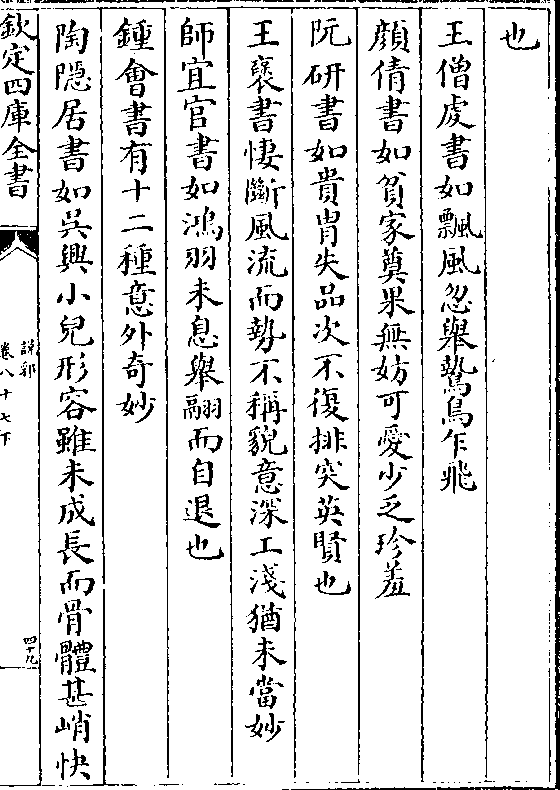 也
王僧虔書如飄風忽舉鷙鳥乍飛
顔倩書如貧家奠果無妨可愛少乏珍羞
阮研書如貴胄失品次不復排突英賢也
王褒書悽斷風流而勢不稱貌意深工淺猶未當妙
師宜官書如鴻羽未息舉翮而自退也
鍾會書有十二種意外奇妙
陶隠居書如吳興小兒形容雖未成長而骨體甚峭快
欽定四庫全書
說郛
卷八十七下
四十九